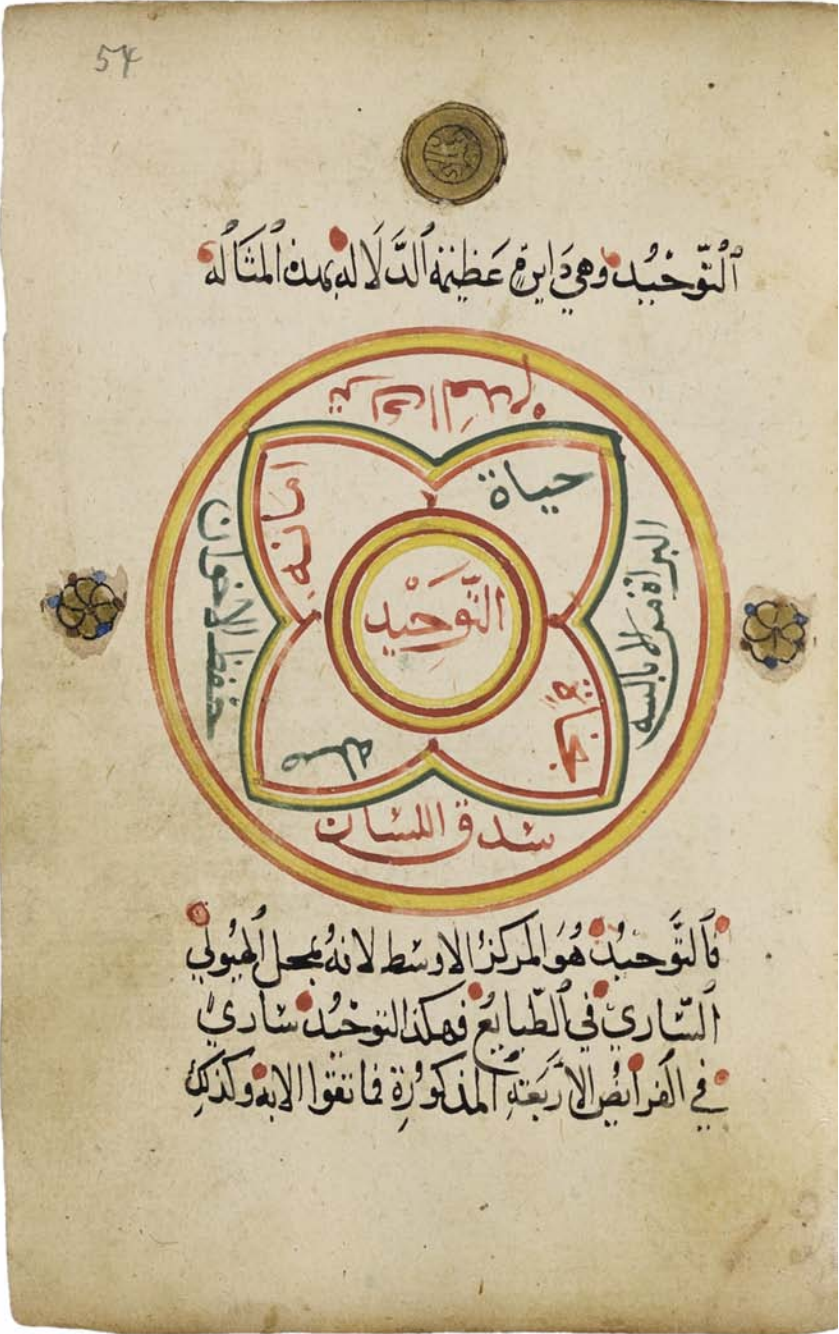 54
اَلتَّوحْيُد وهي دَايرة عَظيمة الدَّلَا له بهده المثَاله
ترك العدم
حياة
امانه
البراة من الابالسه
حفظ الاخوان
التَّوحَيْد
سدق اللسان
فاَلتَّوحيُد هُوَ المركز الاوسط لانهُ بمحل الهيولي
السَّاري في الطبايع فهكذا التوحْيُد ساري
في الفرائض الارَبَعَة المذكورة فما تفقوا الابه وكذلك